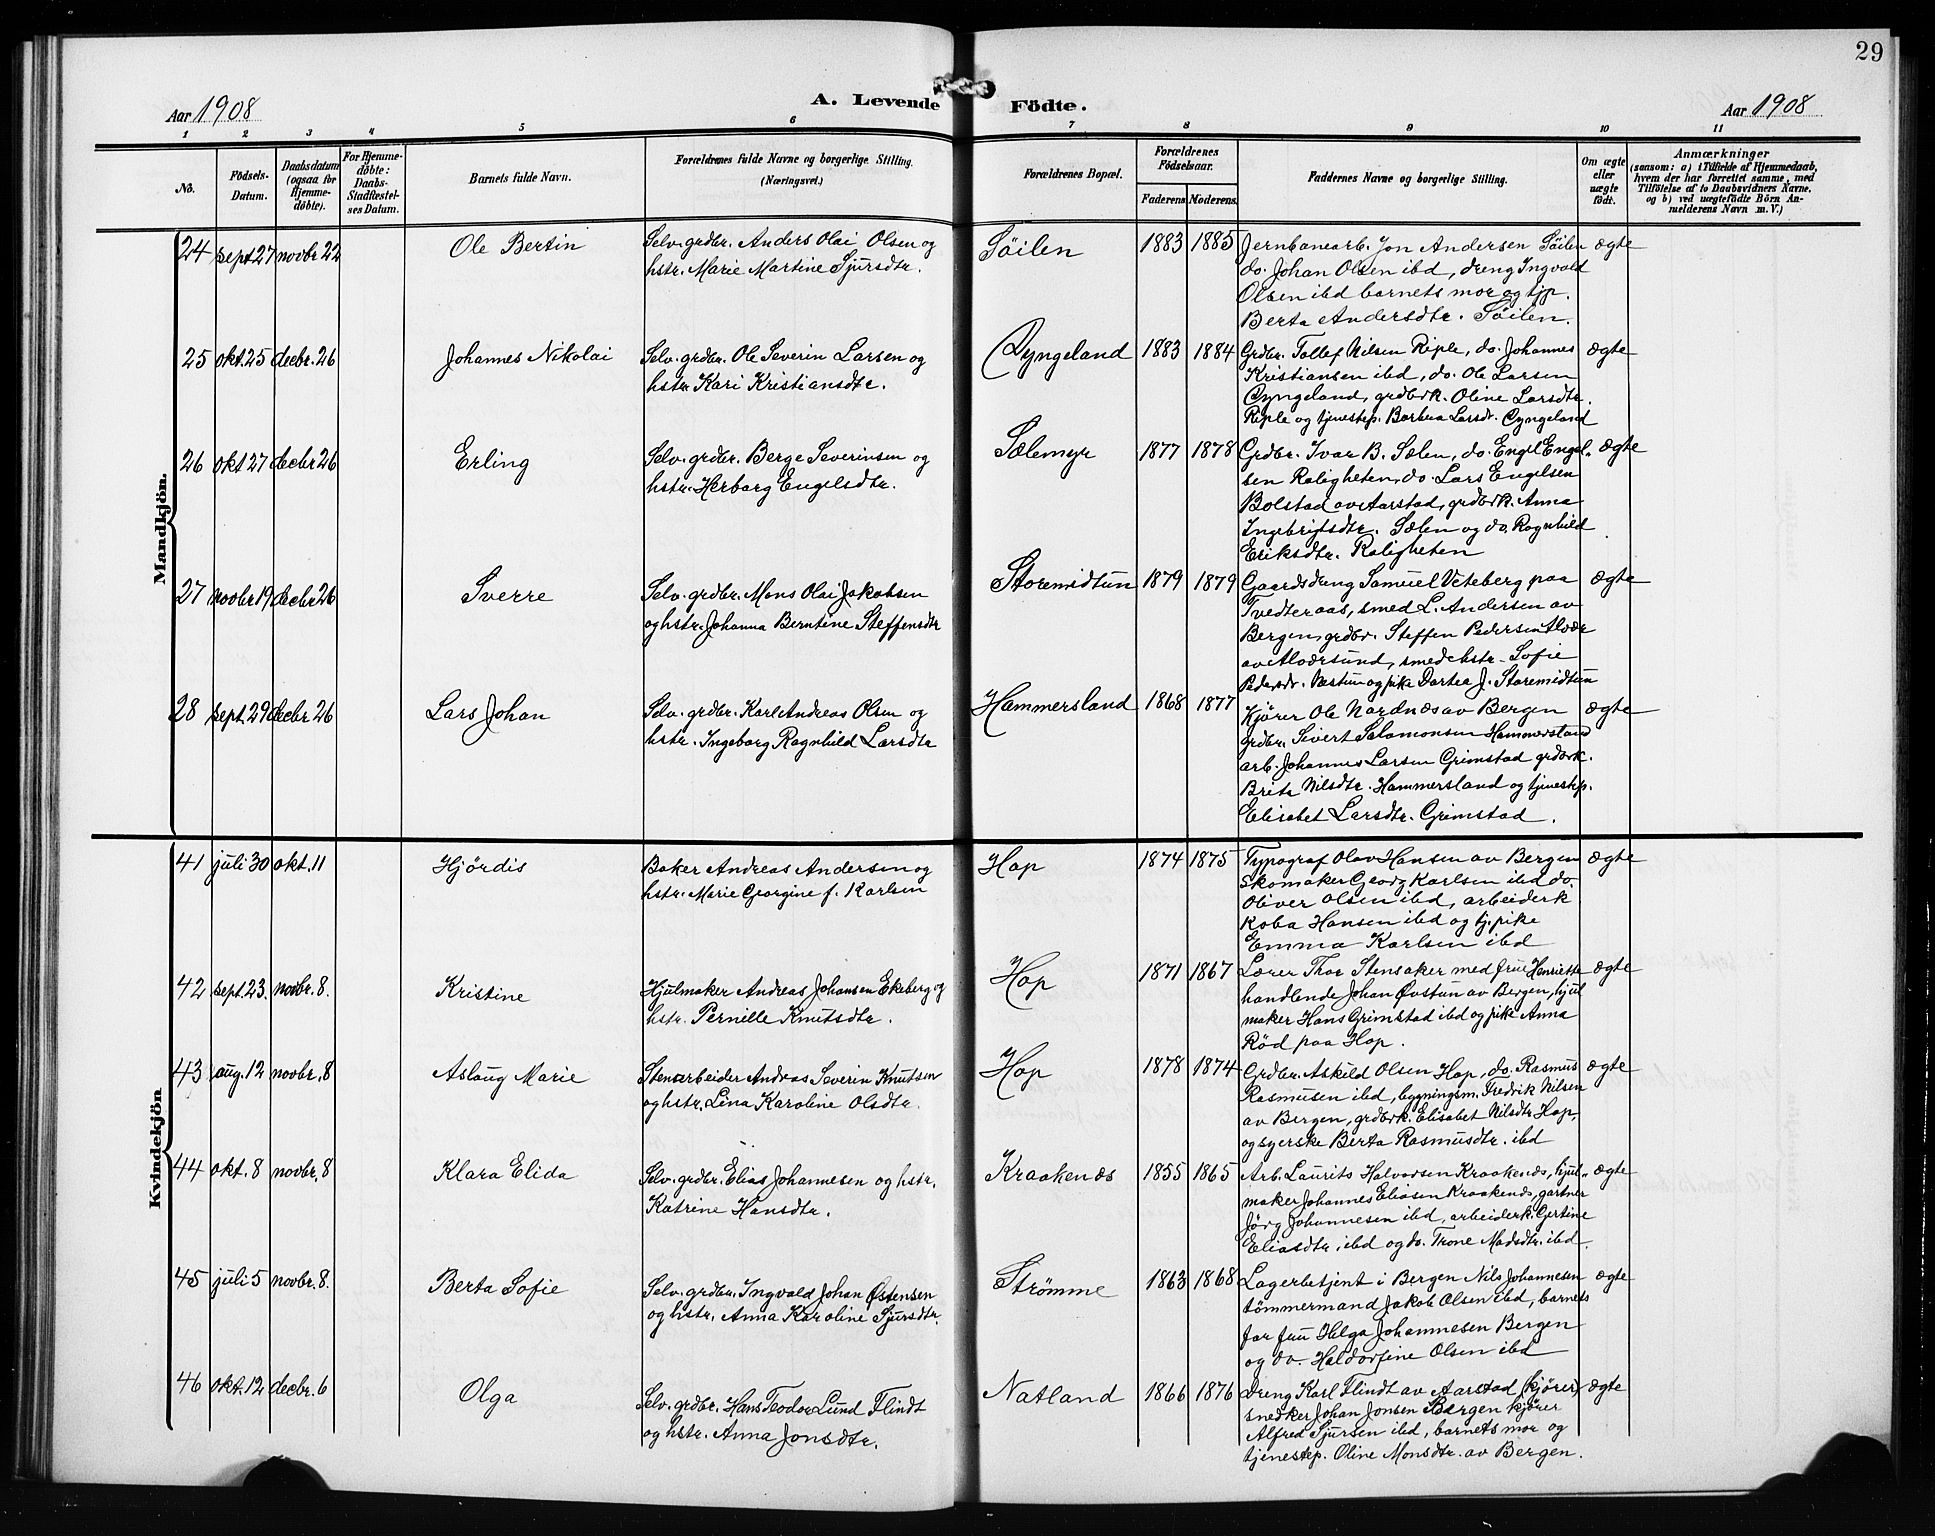 29
Aar 1908
A. Levende Födte.
Aar 1908
1 2 3 4 5 6 7 8 9 10 11
No.
Födsels-
Datum.
Daabsdatum
(ogsaa for
Hjemme-
döbte).
For Hjemme-
döbte:
Daabs-
Stadfæstel-
ses Datum.
Barnets fulde Navn.
Forældrenes fulde Navne og borgerlige Stilling.
(Næringsvei.)
Forældrenes Bopæl.
Forældrenes
Födselsaar.
Faderens Moderens.
Faddernes Navne og borgerlige Stilling.
Om ægte
eller
uægte
födt.
Anmærkninger
(saasom: a) i Tilfælde af Hjemmedaab,
hvem der har forrettet samme, med
Tilföielse af to Daabsvidners Navne,
og b) ved uægtefödte Börn An-
melderens Navn m. V.)
Mandkjön.
24 sept 27 novbr 22 Ole Bertin
Selv. grdbr. Anders Olai Olsen og
hstr. Marie Martine Sjursdtr.
Söilen 1883 1885
Jernbanearb. Jon Andersen Söilen
do. Johan Olsen ibd, dreng Ingvald
Olsen ibd barnets mor og tjp.
Berta Andersdtr. Söilen.
ægte
25 okt. 25 decbr. 26 Johannes Nikolai
Selv. grdbr. Ole Severin Larsen og
hstr. Kari Kristiansdtr.
Dyngeland 1883 1884
Grdbr. Tollef Nilsen Riple, do. Johannes
Kristiansen ibd, do. Ole Larsen
Dyngeland, grdbrk. Oline Larsdtr.
Riple og tjenestep. Barbra Larsdr. Dyngeland
ægte
26 okt 27 decbr 26 Erling
Selv. grdbr. Berge Severinsen og
hstr. Herborg Engelsdtr.
Sælemyr 1877 1878
Grdbr. Ivar B. Sælen, do. Engel Engel-
sen Roligheten, do. Lars Engelsen
Bolstad av Aarstad, grdbrk. Anna
Ingebrigtsdtr. Sælen og do. Ragnhild
Eriksdtr. Roligheten
ægte
27 novbr 19 decbr 26 Sverre
Selv. grdbr. Mons Olai Jakobsen
og hstr. Johanna Berntine Steffensdtr
Storemidtun 1879 1879
Gaardsdreng Samuel Veteberg paa
Tvedteraas, smed L. Andersen av
Bergen, grdbr. Steffen Pedersen Alvær
av Alversund, smedehstr. Sofie
Pedersdr. Næstun og pike Dortea J. Storemidtun
ægte
28 sept. 29 decbr 26 Lars Johan
Selv. grdbr. Karl Andreas Olsen og
hstr. Ingeborg Ragnhild Larsdtr
Hammersland 1868 1877
Kjører Ole Nordnes av Bergen
grdbr. Sivert Salamonsen Hammersland
arb. Johannes Larsen Grimstad grdbrk.
Brita Nilsdtr. Hammersland og tjenestep.
Elisabet Larsdtr. Grimstad.
ægte
Kvindekjön
41 juli 30 okt. 11 Hjørdis
Baker Andreas Andersen og
hstr. Marie Georgine f. Karlsen
Hop 1874 1875
Typograf Olav Hansen av Bergen
Skomaker Georg Karlsen ibd do.
Oliver Olsen ibd, arbeiderk
Koba Hansen ibd og tj. pike
Emma Karlsen ibd
ægte
42 sept. 23. novbr. 8. Kristine
Hjulmaker Andreas Johansen Ekeberg og
hstr. Pernille Knutsdtr.
Hop 1871 1867
Lærer Thor Stensaker med frue Henriette
handlende Johan Øvstun av Bergen, hjul
maker Hans Grimstad ibd og pike Anna
Rød paa Hop.
ægte
43 aug. 12 novbr. 8 Aslaug Marie
Stenarbeider Andreas Severin Knutsen
og hstr. Lina Karoline Olsdtr.
Hop 1878 1874
Grdbr. Askild Olsen Hop, do. Rasmus
Rasmusen ibd, bygningsm. Fredrik Nilsen
av Bergen, grdbrk. Elisabet Nilsdtr Hop,
og syerske Berta Rasmusdtr. ibd
ægte
44 okt. 8 novbr. 8 Klara Elida
Selv. grdbr. Elias Johannesen og hstr.
Katrine Hansdtr.
Kraakenæs 1855 1865
Arb. Laurits Halvorsen Kraakenæs, hjul-
maker Johannes Eliasen Kraakenæs, gartner
Jörg Johannesen ibd, arbeiderk. Gertine
Eliasdtr. ibd og do. Trone Madsdtr. ibd.
ægte
45 juli 5 novbr. 8. Berta Sofie
Selv. grdbr. Ingvald Johan Østensen
og hstr. Anna Karoline Sjursdtr.
Strømme 1863 1868
Lagerbetjent i Bergen Nils Johannesen
tömmermand Jakob Olsen ibd, barnets
far fru Helga Johannesen Bergen
og do. Haldorfine Olsen ibd
ægte
46 okt. 12 decbr. 6 Olga
Selv. grdbr. Hans Teodor Lund Flindt
og hstr. Anna Jonsdtr.
Natland 1866 1876
Dreng Karl Flindt av Aarstad (kjører)
snedker Johan Jonsen Bergen kjører
Alfred Sjursen ibd, barnets mor og
tjenestep. Oline Monsdtr. av Bergen.
ægte